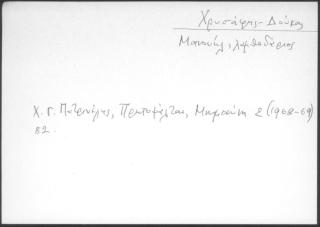 Χρυσάφης - Δούκας
Μανουήλ, λαμπαδάριος
Χ. Γ. Πατρινέλης, Πρωτοψάλται, Μνημοσύνη 2 (1968-69)
82.